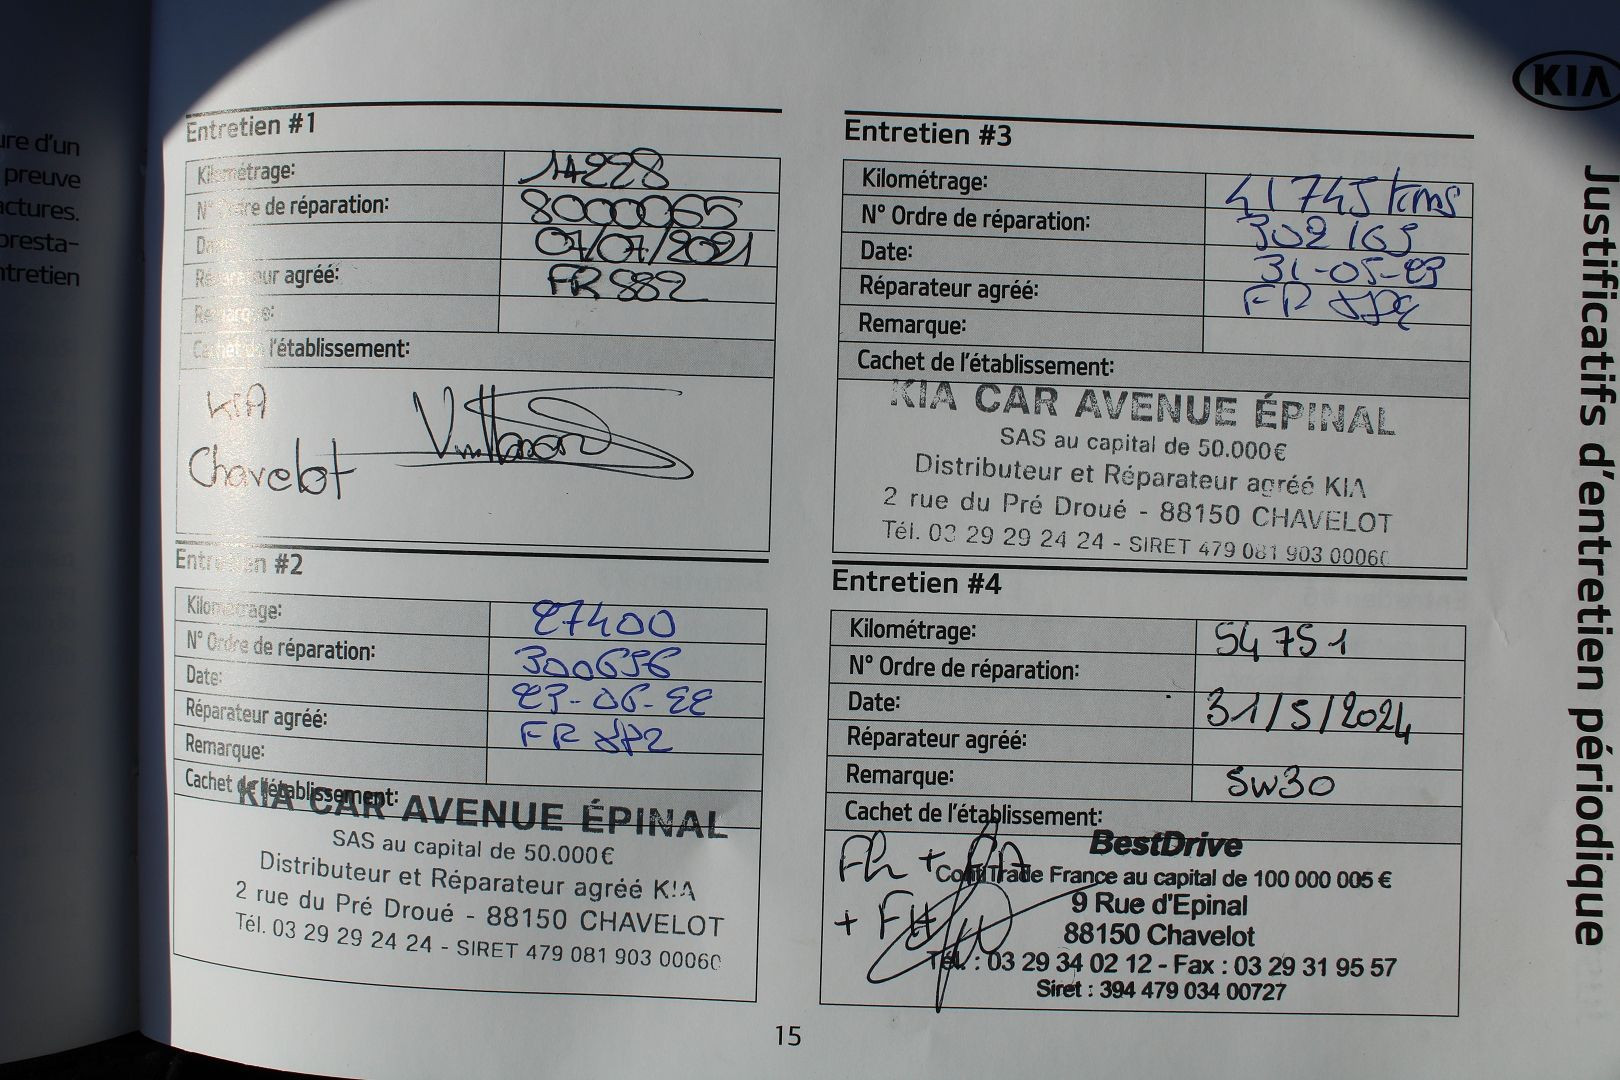 ure d'un
preuve
actures.
presta-
ntretien
KIA
Justificatifs d'entretien périodique
Entretien #1
Kilométrage: 14228
N° Ordre de réparation: 8000065
Date: 07/07/2021
Réparateur agréé: FR 882
Remarque:
Cachet de l'établissement:
KIA
Chavelot
Entretien #2
Kilométrage: 27400
N° Ordre de réparation: 300696
Date: 23-06-22
Réparateur agréé: FR
Remarque:
Cachet de l'établissement:
KIA CAR AVENUE ÉPINAL
SAS au capital de 50.000€
Distributeur et Réparateur agréé KIA
2 rue du Pré Droué - 88150 CHAVELOT
Tél. 03 29 29 24 24 - SIRET 479 081 903 00060
Entretien #3
Kilométrage: 41745 kms
N° Ordre de réparation: 302163
Date: 31-05-23
Réparateur agréé: FR
Remarque:
Cachet de l'établissement:
KIA CAR AVENUE ÉPINAL
SAS au capital de 50.000€
Distributeur et Réparateur agréé KIA
2 rue du Pré Droué - 88150 CHAVELOT
Tél. 03 29 29 24 24 - SIRET 479 081 903 00060
Entretien #4
Kilométrage: 54751
N° Ordre de réparation:
Date: 31/5/2024
Réparateur agréé:
Remarque: 5w30
Cachet de l'établissement:
BestDrive
ContiTrade France au capital de 100 000 005 €
9 Rue d'Epinal
88150 Chavelot
Tél. : 03 29 34 02 12 - Fax : 03 29 31 95 57
Siret : 394 479 034 00727
Fh + FA
+ FH
15